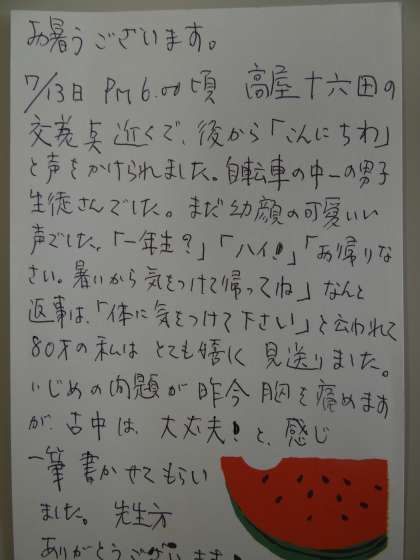 お暑うございます。
7/13日 PM 6.00頃 高屋十六田の
交差点近くで、後から「こんにちわ」
と声をかけられました。自転車の中一の男子
生徒さんでした。まだ幼顔の可愛いい
声でした。「一年生?」「ハイ!」「お帰りな
さい。暑いから気をつけて帰ってね」なんと
返事は、「体に気をつけて下さい」と云われて
80才の私はとても嬉しく見送りました。
いじめの問題が昨今胸を痛めます
が、古中は、大丈夫!と、感じ
一筆書かせてもらい
ました。先生方
ありがとうございます